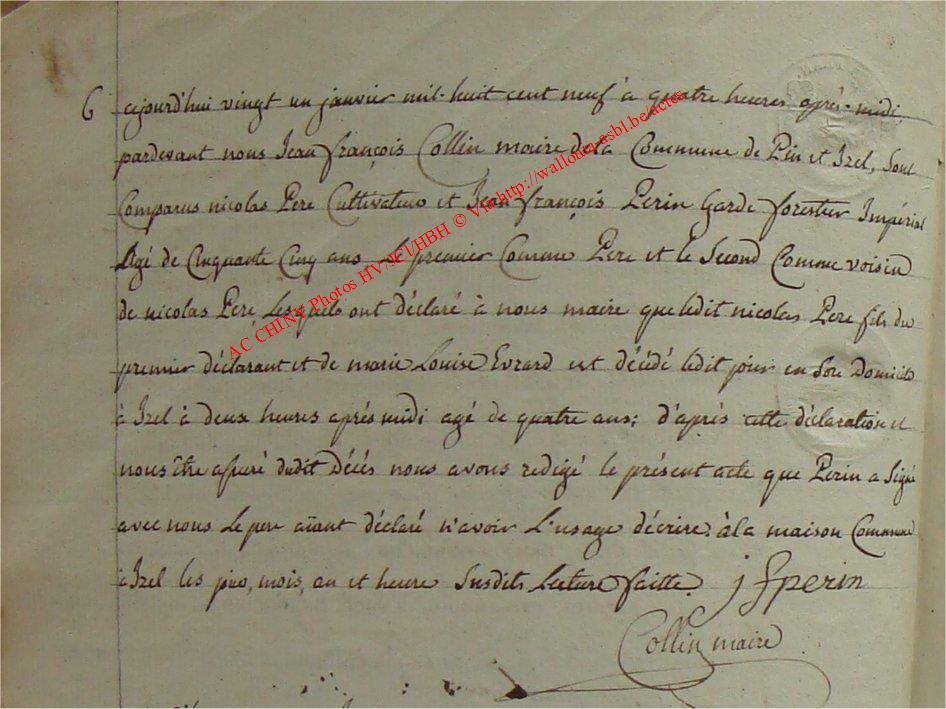 6 cejourd'hui vingt un janvier mil-huit cent neuf à quatre heures après-midi,
pardevant nous Jean françois Collin maire de la Commune de Pin et Izel, Sont
Comparus nicolas Pere Cultivateur et Jean françois Perin Garde forestier Impérial
Agé de Cinquante Cinq ans le premier Comme Pere et le Second Comme voisin
de nicolas Pere, Lesquels ont déclaré à nous maire que ledit nicolas Pere fils du
premier déclarant et de marie Louise Evrard est décédé ledit jour en Son Domicile
à Izel à deux heures après midi agé de quatre ans; d'après cette déclaration et
nous être assuré dudit Décès nous avons redigé le présent acte que Perin a Signé
avec nous Le pere aïant déclaré n'avoir L'usage décrire. à la maison Commune
à Izel les jour, mois, an et heure Susdits Lecture faitte. j f perin
Collin maire
AC CHINY Photos HV7JCL/HBH © Via http://wallonia-asbl.be/actea